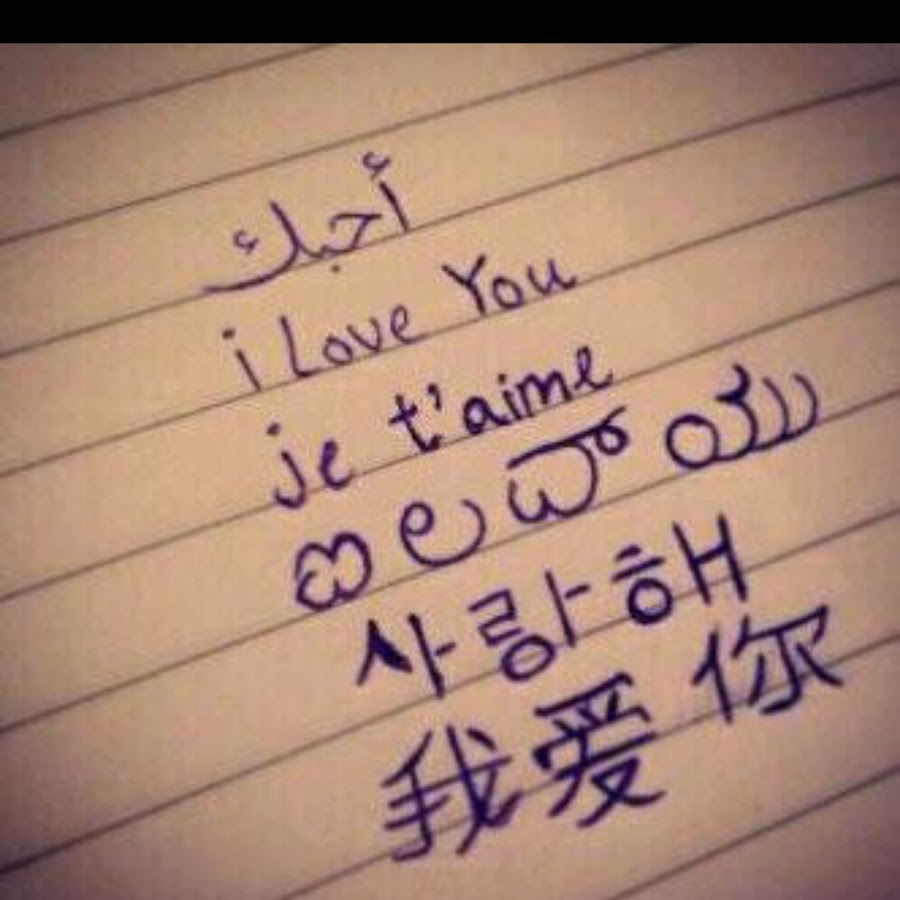 أحبك
i Love You
je t'aime
ఐ ల వా యు
사랑해
我爱你